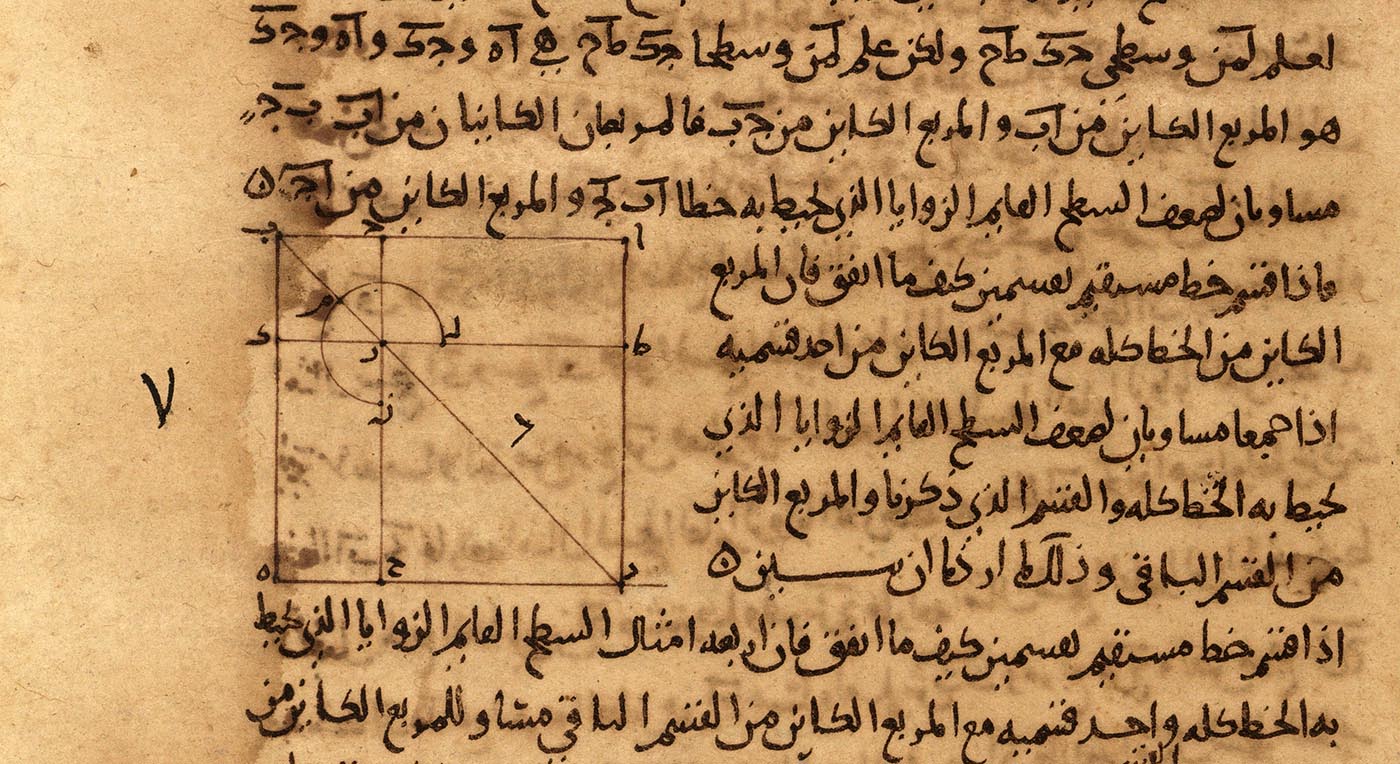 لعلم لمن وسطحي جك طح ولكن علم لمن وسطحا جك طح هي اه وجك واه وجك
هو المربع الكاين من اب و المربع الكاين من جب فالمربعان الكاينان من اب ب ج
مساويان لضعف السطح القايم الزوايا الذي يحيط به خطا اب بج و المربع الكاين من اج ه
فاذا قسم خط مستقيم بقسمين كيف ما اتفق فان المربع
الكاين من الخط كله مع المربع الكاين من احد قسميه
اذا جمعا مساويان لضعف السطح القايم الزوايا الذي
يحيط به الخط كله والقسم الذي ذكرنا والمربع الكاين
من القسم الباقي وذلك ما اردنا ان نبين ه
اذا قسم خط مستقيم بقسمين كيف ما اتفق فان اربعه امثال السطح القايم الزوايا الذي يحيط
به الخط كله واحد قسميه مع المربع الكاين من القسم الباقي مساو للمربع الكاين من
ب
ج
ا
م
ل
ك
ز
ط
ن
٧
ه
ح
د